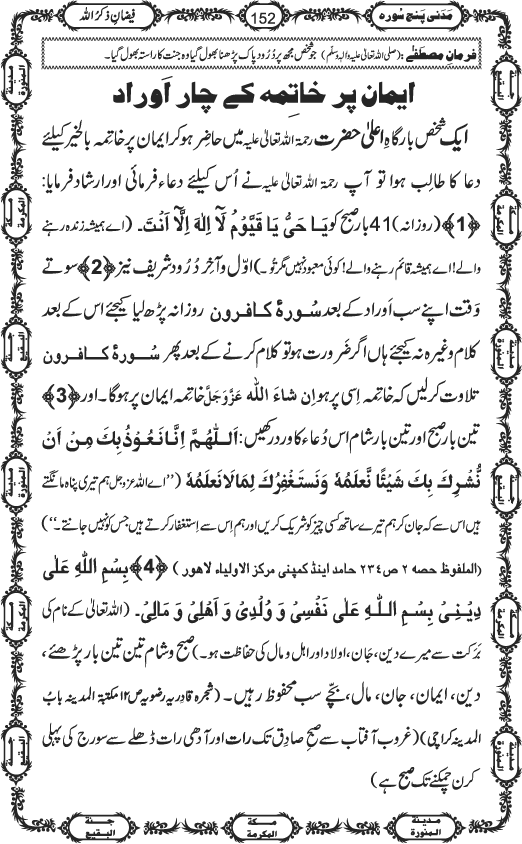 مَدَنی پَنج سُورہ
152
فیضانِ ذِکرُ اللہ
فرمانِ مصطَفٰے : (صلی اللہ تعالیٰ علیہ والہ وسلّم) جو شخص مجھ پر دُرُود پاک پڑھنا بھول گیا وہ جنّت کا راستہ بھول گیا۔
ایمان پر خاتِمہ کے چار اَوراد
ایک شخص بارگاہِ اعلیٰ حضرت رحمۃ اللہ تعالیٰ علیہ میں حاضِر ہو کر ایمان پر خاتِمہ بالخیر کیلئے
دعا کا طالِب ہوا تو آپ رحمۃ اللہ تعالیٰ علیہ نے اُس کیلئے دعاء فرمائی اور ارشاد فرمایا:
﴿1﴾ (روزانہ) 41 بار صبح کو یَا حَیُّ یَا قَیُّوْمُ لَآ اِلٰهَ اِلَّآ اَنْتَ۔ (اے ہمیشہ زندہ رہنے
والے! اے ہمیشہ قائم رہنے والے! کوئی معبود نہیں مگر تُو۔) اوّل و آخِر دُرُود شریف نیز ﴿2﴾ سوتے
وَقت اپنے سب اَوراد کے بعد سُورۂ کافرون روزانہ پڑھ لیا کیجئے اس کے بعد
کلام وغیرہ نہ کیجئے ہاں اگر ضَرورت ہو تو کلام کرنے کے بعد پھر سُورۂ کافرون
تلاوت کر لیں کہ خاتِمہ اِسی پر ہو اِن شاءَ اللہ عَزَّوَجَلَّ خاتِمہ ایمان پر ہوگا۔ اور ﴿3﴾
تین بار صبح اور تین بار شام اس دُعاء کا وِرد رکھیں: اَللّٰهُمَّ اِنَّا نَعُوْذُ بِكَ مِنْ اَنْ
نُّشْرِكَ بِكَ شَيْئًا نَّعْلَمُهٗ وَنَسْتَغْفِرُكَ لِمَا لَا نَعْلَمُهٗ (’’اے اللہ عزوجل ہم تیری پناہ مانگتے
ہیں اس سے کہ جان کر ہم تیرے ساتھ کسی چیز کو شریک کریں اور ہم اِس سے اِستغفار کرتے ہیں جس کو نہیں جانتے۔‘‘)
(الملفوظ حصہ ۲ ص ۲۳٤ حامد اینڈ کمپنی مرکز الاولیاء لاھور) ﴿4﴾ بِسْمِ اللّٰهِ عَلٰى
دِيْنِىْ بِسْمِ اللّٰهِ عَلٰى نَفْسِىْ وَ وُلْدِىْ وَ اَهْلِىْ وَ مَالِىْ۔ (اللہ تعالیٰ کے نام کی
بَرَکت سے میرے دین، جان، اولاد اور اہل و مال کی حفاظت ہو۔) صبح و شام تین تین بار پڑھئے،
دین، ایمان، جان، مال، بچّے سب محفوظ رہیں۔ (شجرہ قادریہ رضویہ ص۱۲ مکتبۃ المدینہ بابُ
المدینہ کراچی) (غروبِ آفتاب سے صبحِ صادِق تک رات اور آدھی رات ڈھلے سے سورج کی پہلی
کرن چمکنے تک صبح ہے)
مدینۃ المنورۃ
جنۃ البقیع
مکۃ المکرمۃ
مدینۃ المنورۃ
جنۃ البقیع
مکۃ المکرمۃ
مدینۃ المنورۃ
جنۃ البقیع
مکۃ المکرمۃ
مدینۃ المنورۃ
جنۃ البقیع
مکۃ المکرمۃ
مدینۃ المنورۃ
جنۃ البقیع
مکۃ المکرمۃ
مدینۃ المنورۃ